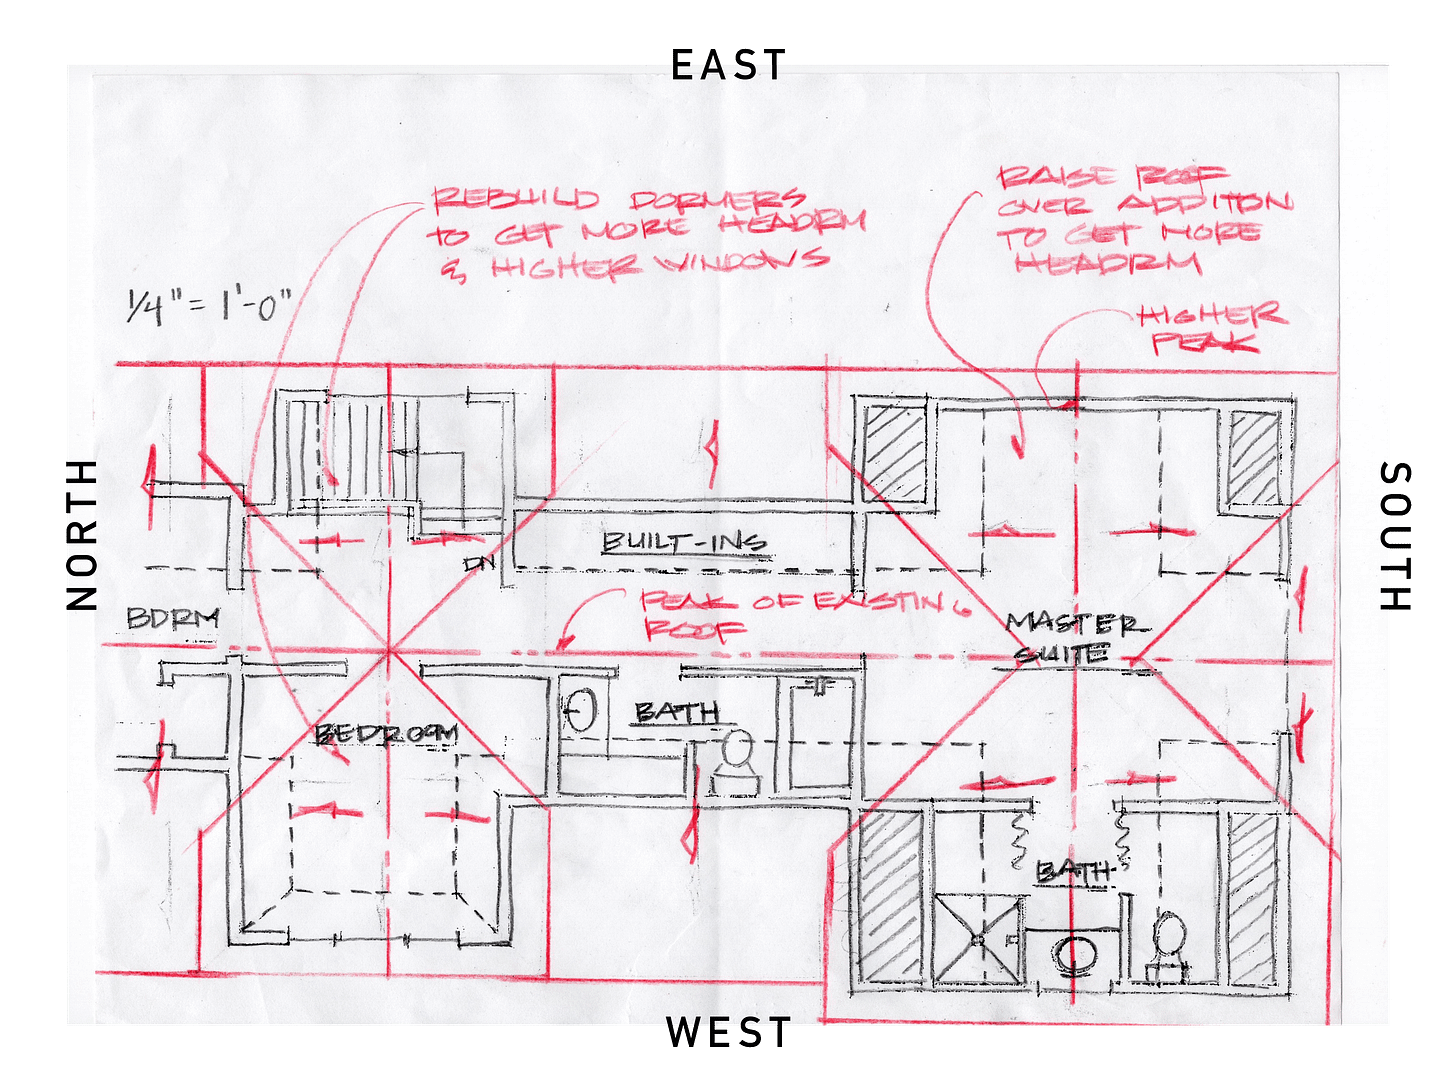 EAST
REBUILD DORMERS
TO GET MORE HEADRM
& HIGHER WINDOWS
RAISE ROOF
OVER ADDITION
TO GET MORE
HEADRM
1/4" = 1'-0"
HIGHER
PEAK
NORTH
SOUTH
BUILT-INS
DN
BDRM
PEAK OF EXISTING
ROOF
MASTER
SUITE
BEDROOM
BATH
BATH
WEST